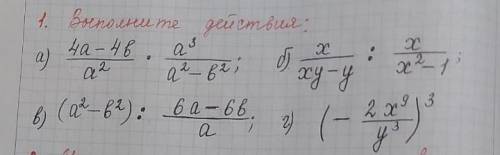 1. Выполните действия:
а) (4a-4в)/a² · a³/(a²-в²); б) x/(xy-y) : x/(x²-1);
в) (a²-в²) : (6a-6в)/a; г) (- 2x⁹/y³)³